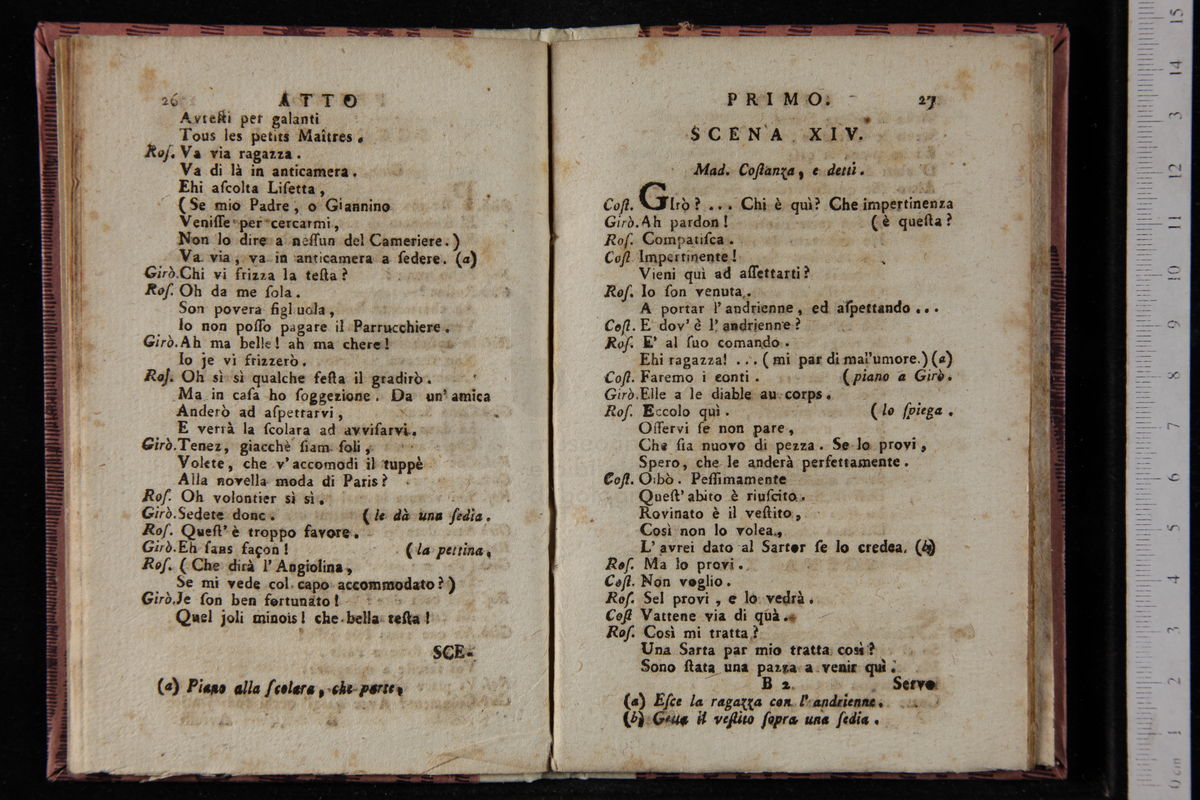 26 ATTO
Avresti per galanti
Tous les petits Maîtres.
Roſ. Va via ragazza.
Va di là in anticamera.
Ehi aſcolta Liſetta,
(Se mio Padre, o Giannino
Veniſſe per cercarmi,
Non lo dire a neſſun del Cameriere.)
Va via, va in anticamera a ſedere. (a)
Girò. Chi vi frizza la teſta?
Roſ. Oh da me ſola.
Son povera figliuola,
Io non poſſo pagare il Parrucchiere.
Girò. Ah ma belle! ah ma chere!
Io je vi frizzerò.
Roſ. Oh sì sì qualche feſta il gradirò.
Ma in caſa ho ſoggezione. Da un' amica
Anderò ad aſpettarvi,
E verrà la ſcolara ad avviſarvi.
Girò. Tenez, giacchè ſiam ſoli,
Volete, che v'accomodi il tuppè
Alla novella moda di Paris?
Roſ. Oh volontier sì sì.
Girò. Sedete donc. (le dà una ſedia.
Roſ. Queſt' è troppo favore.
Girò. Eh ſans façon! (la pettina,
Roſ. (Che dirà l'Angiolina,
Se mi vede col capo accommodato?)
Girò. Je ſon ben fortunato!
Quel joli minois! che bella teſta!
SCE-
(a) Piano alla ſcolara, che parte,
PRIMO. 27
SCENA XIV.
Mad. Coſtanza, e detti.
Coſt. GIrò? ... Chi è quì? Che impertinenza
Girò. Ah pardon! (è queſta?
Roſ. Compatiſca.
Coſt Impertinente!
Vieni quì ad aſſettarti?
Roſ. Io ſon venuta.
A portar l'andrienne, ed aſpettando ...
Coſt. E dov' è l'andrienne?
Roſ. E' al ſuo comando.
Ehi ragazza! ... (mi par di mal'umore.) (a)
Coſt. Faremo i conti. (piano a Girò.
Girò. Elle a le diable au corps.
Roſ. Eccolo quì. (lo ſpiega.
Oſſervi ſe non pare,
Che ſia nuovo di pezza. Se lo provi,
Spero, che le anderà perfettamente.
Coſt. Oibò. Peſſimamente
Queſt' abito è riuſcito.
Rovinato è il veſtito,
Così non lo volea,
L'avrei dato al Sartor ſe lo credea. (b)
Roſ. Ma lo provi.
Coſt. Non voglio.
Roſ. Sel provi, e lo vedrà.
Coſt Vattene via di quà.
Roſ. Così mi tratta?
Una Sarta par mio tratta così?
Sono ſtata una pazza a venir quì.
B 2 Servo
(a) Eſce la ragazza con l'andrienne.
(b) Getta il veſtito ſopra una ſedia.
0 cm 1 2 3 4 5 6 7 8 9 10 11 12 13 14 15